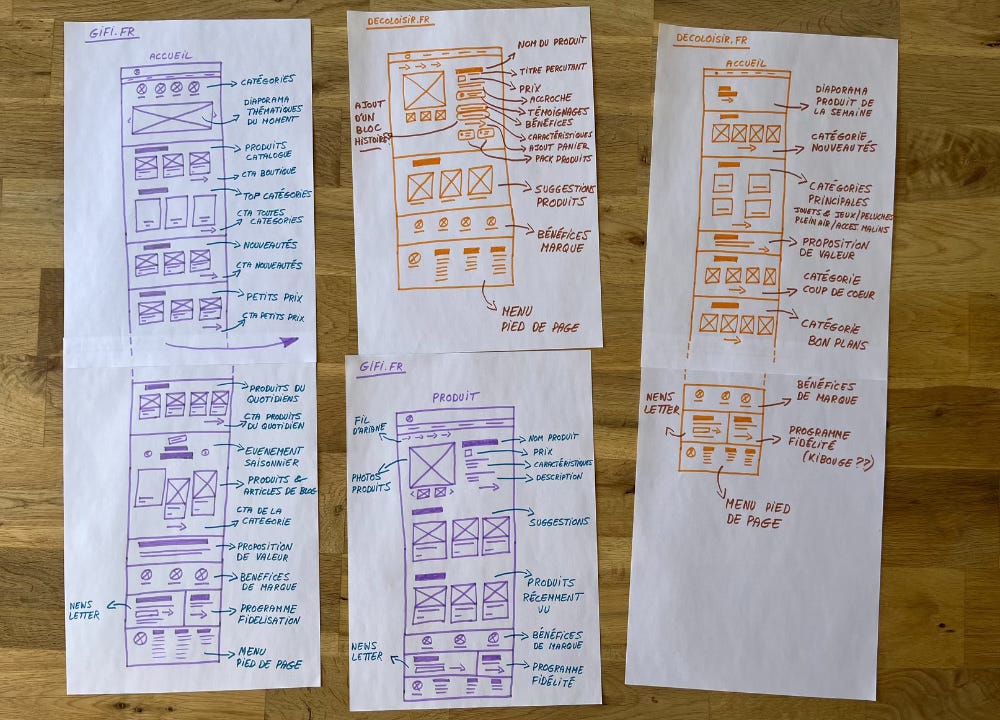 GiFi.FR
ACCUEIL
CATÉGORIES
DIAPORAMA
THÉMATIQUES
DU MOMENT
PRODUITS
CATALOGUE
CTA BOUTIQUE
TOP CATÉGORIES
CTA TOUTES
CATEGORIES
NOUVEAUTÉS
CTA NOUVEAUTÉS
PETITS PRIX
CTA PETITS PRIX
PRODUITS DU
QUOTIDIENS
CTA PRODUITS
DU QUOTIDIEN
EVENEMENT
SAISONNIER
PRODUITS &
ARTICLES DE BLOG
CTA DE LA
CATÉGORIE
PROPOSITION
DE VALEUR
BENEFICES
DE MARQUE
NEWS
LETTER
PROGRAMME
FIDELISATION
MENU
PIED DE PAGE
DECOLOISIR.FR
NOM DU PRODUIT
TITRE PERCUTANT
PRIX
ACCROCHE
TÉMOIGNAGES
BÉNÉFICES
CARACTÉRISTIQUES
AJOUT PANIER
PACK PRODUITS
AJOUT
D'UN
BLOC
HISTOIRE
SUGGESTIONS
PRODUITS
BÉNÉFICES
MARQUE
MENU
PIED DE PAGE
GiFi.FR
PRODUIT
FIL
D'ARIANE
NOM PRODUIT
PRIX
CARACTÉRISTIQUES
DESCRIPTION
PHOTOS
PRODUITS
SUGGESTIONS
PRODUITS
RÉCEMMENT
VU
BÉNÉFICES
DE MARQUE
NEWS
LETTER
PROGRAMME
FIDÉLITÉ
DECOLOISIR.FR
ACCUEIL
DIAPORAMA
PRODUIT DE
LA SEMAINE
CATÉGORIE
NOUVEAUTÉS
CATÉGORIES
PRINCIPALES
JOUETS & JEUX/PELUCHES
PLEIN AIR/ACCES MALINS
PROPOSITION
DE VALEUR
CATÉGORIE
COUP DE COEUR
CATÉGORIE
BON PLANS
BÉNÉFICES
DE MARQUE
NEWS
LETTER
PROGRAMME
FIDÉLITÉ
(KIBOUGE ??)
MENU PIED
DE PAGE